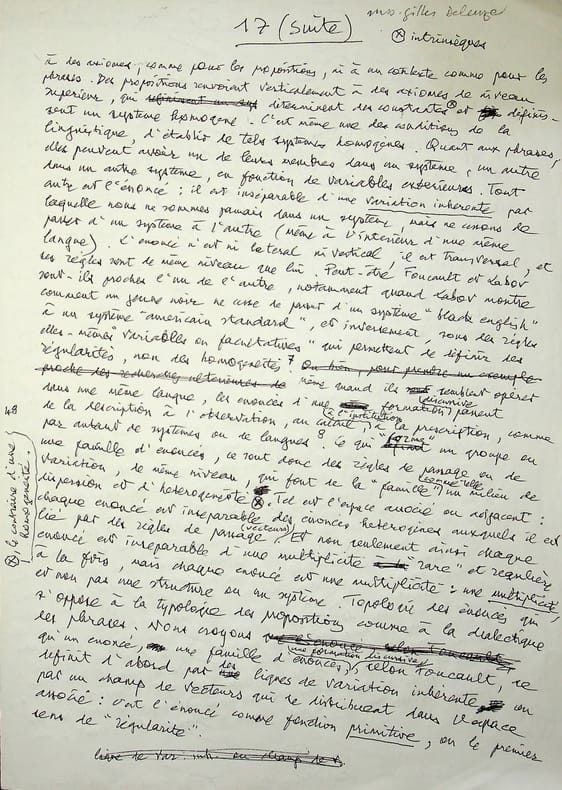 mss. gilles Deleuze
17 (suite)
ⓧ intrinsèques
à des axiomes, comme pour les propositions, ni à un contexte comme pour les
phrases. Des propositions renvoient verticalement à des axiomes de niveau
supérieur, qui déterminent des constantes ⓧ et définis-
sent un système homogène. C'est même une des conditions de la
linguistique, d'établir de tels systèmes homogènes. Quant aux phrases,
elles peuvent avoir un de leurs membres dans un système, un autre
dans un autre système, en fonction de variables extérieures. Tout
autre est l'énoncé : il est inséparable d'une variation inhérente par
laquelle nous ne sommes jamais dans un système, mais ne cessons de
passer d'un système à l'autre (même à l'intérieur d'une même
langue). L'énoncé n'est ni latéral ni vertical, il est transversal, et
ses règles sont de même niveau que lui. Peut-être Foucault et Labov
sont-ils proches l'un de l'autre, notamment quand Labov montre
comment un jeune noir ne cesse de passer d'un système "black english"
à un système "américain standard", et inversement, sous des règles
elles-mêmes "variables ou facultatives" qui permettent de définir des
régularités, non des homogénéités 7. Ou bien, pour prendre un exemple
proche des recherches ultérieures de même quand ils semblent opérer
dans une même langue, les énoncés d'une formation discursive passent
de la description à l'observation, au calcul, à l'institution, à la prescription, comme
par autant de systèmes ou de langues 8. Ce qui "forme" un groupe ou
une famille d'énoncés, ce sont donc des règles de passage ou de
variation, de même niveau, qui font de la "famille" comme telle un milieu de
dispersion et d'hétérogénéité ⓧ. Tel est l'espace associé ou adjacent :
chaque énoncé est inséparable des énoncés hétérogènes auxquels il est
lié par des règles de passage (vecteurs). Et non seulement ainsi chaque
énoncé est inséparable d'une multiplicité "rare" et régulière
à la fois, mais chaque énoncé est une multiplicité : une multiplicité,
et non pas une structure ou un système. Topologie des énoncés qui
s'oppose à la typologie des propositions comme à la dialectique
des phrases. Nous croyons
qu'un énoncé, une famille d'énoncés, une formation discursive, selon Foucault, se
définit d'abord par des lignes de variation inhérente ou
par un champ de vecteurs qui se distribuent dans l'espace
associé : c'est l'énoncé comme fonction primitive, ou le premier
sens de "régularité".
ligne de var. inh. ou champ de v.
48
ⓧ, le contraire d'une
homogénéité.